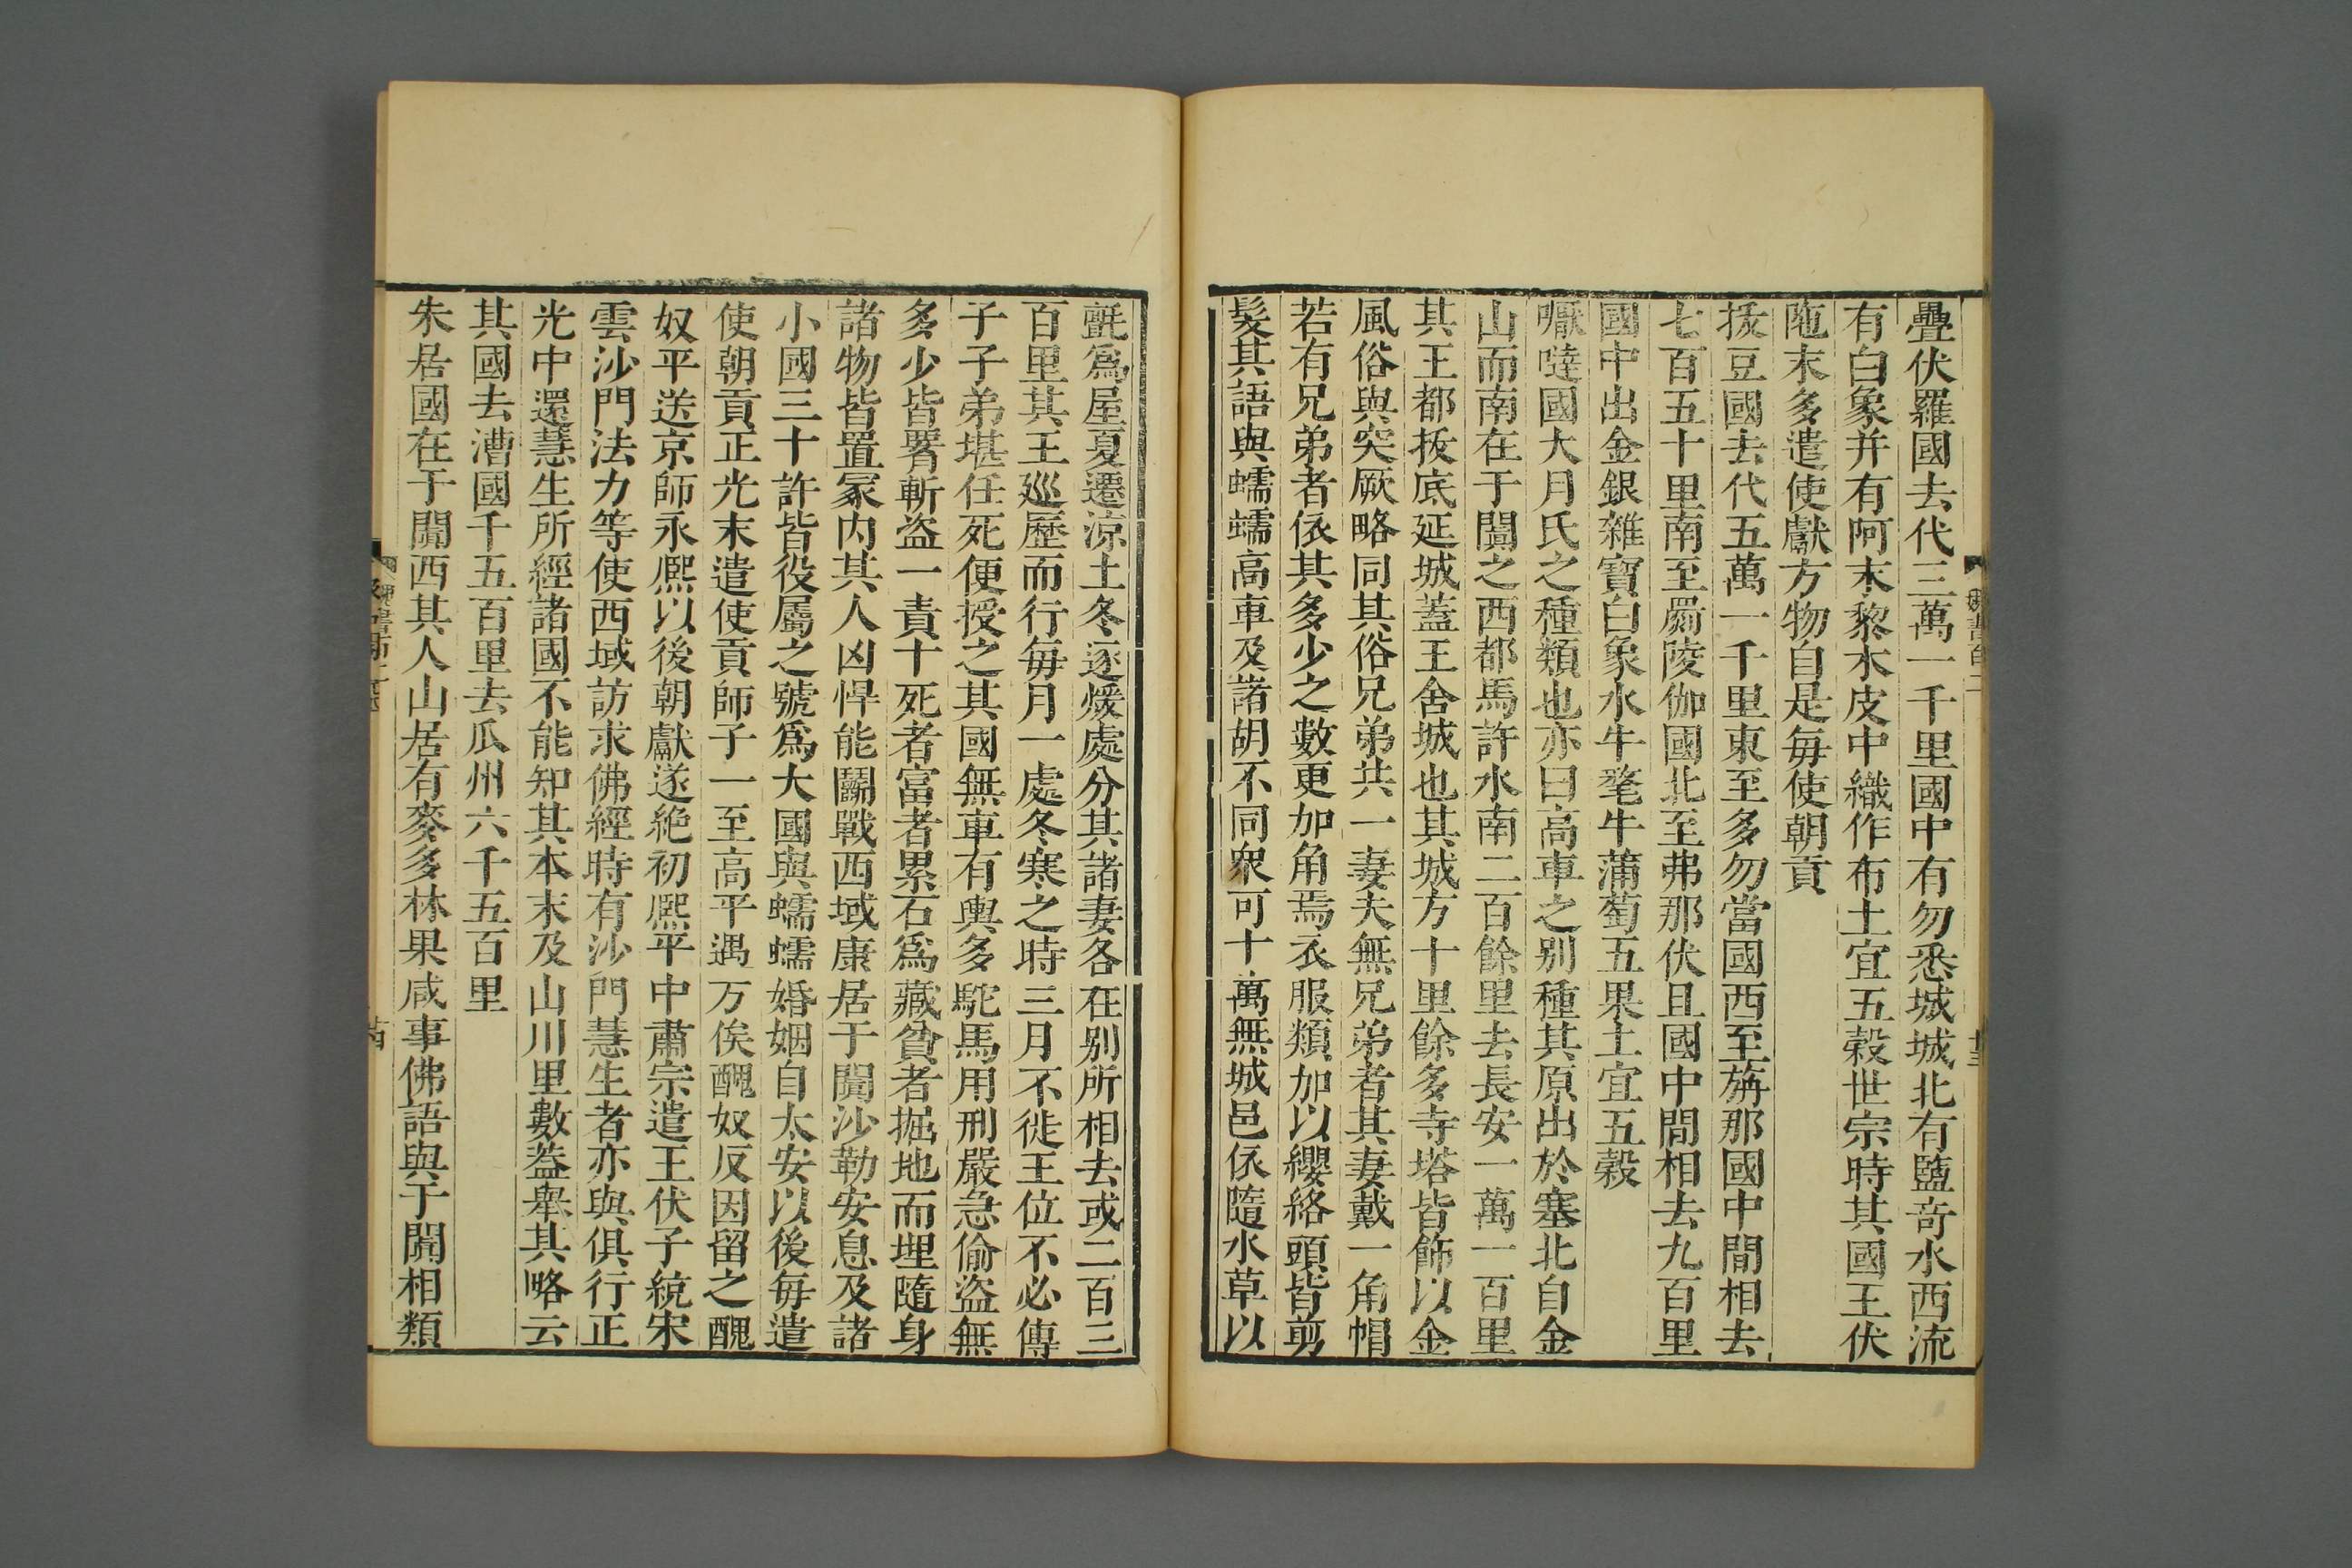 疊伏羅國去代三萬一千里國中有勿悉城城北有鹽奇水西流
有白象并有阿末黎木皮中織作布土宜五榖世宗時其國王伏
陁末多遣使獻方物自是每使朝貢
拔豆國去代五萬一千里東至多勿當國西至旃那國中間相去
七百五十里南至罽陵伽國北至弗那伏且國中間相去九百里
國中出金銀雜寶白象水牛氂牛蒲萄五果土宜五榖
嚈噠國大月氏之種類也亦曰高車之别種其原出於塞北自金
山而南在于闐之西都馬許水南二百餘里去長安一萬一百里
其王都拔底延城蓋王舍城也其城方十里餘多寺塔皆飾以金
風俗與突厥略同其俗兄弟共一妻夫無兄弟者其妻戴一角帽
若有兄弟者依其多少之數更加角焉衣服類加以纓絡頭皆剪
髮其語與蠕蠕高車及諸胡不同衆可十萬無城邑依隨水草以
氈爲屋夏遷涼土冬逐煖處分其諸妻各在别所相去或二百三
百里其王巡歷而行每月一處冬寒之時三月不徙王位不必傳
子子弟堪任死便授之其國無車有輿多駝馬用刑嚴急偷盜無
多少皆腰斬盜一責十死者富者累石爲藏貧者掘地而埋隨身
諸物皆置冢内其人凶悍能鬭戰西域康居于闐沙勒安息及諸
小國三十許皆役屬之號爲大國與蠕蠕婚姻自太安以後每遣
使朝貢正光末遣使貢師子一至高平遇万俟醜奴反因留之醜
奴平送京師永熙以後朝獻遂絶初熙平中肅宗遣王伏子統宋
雲沙門法力等使西域訪求佛經時有沙門慧生者亦與俱行正
光中還慧生所經諸國不能知其本末及山川里數葢舉其略云
其國去漕國千五百里去瓜州六千五百里
朱居國在于闐西其人山居有麥多林果咸事佛語與于闐相類